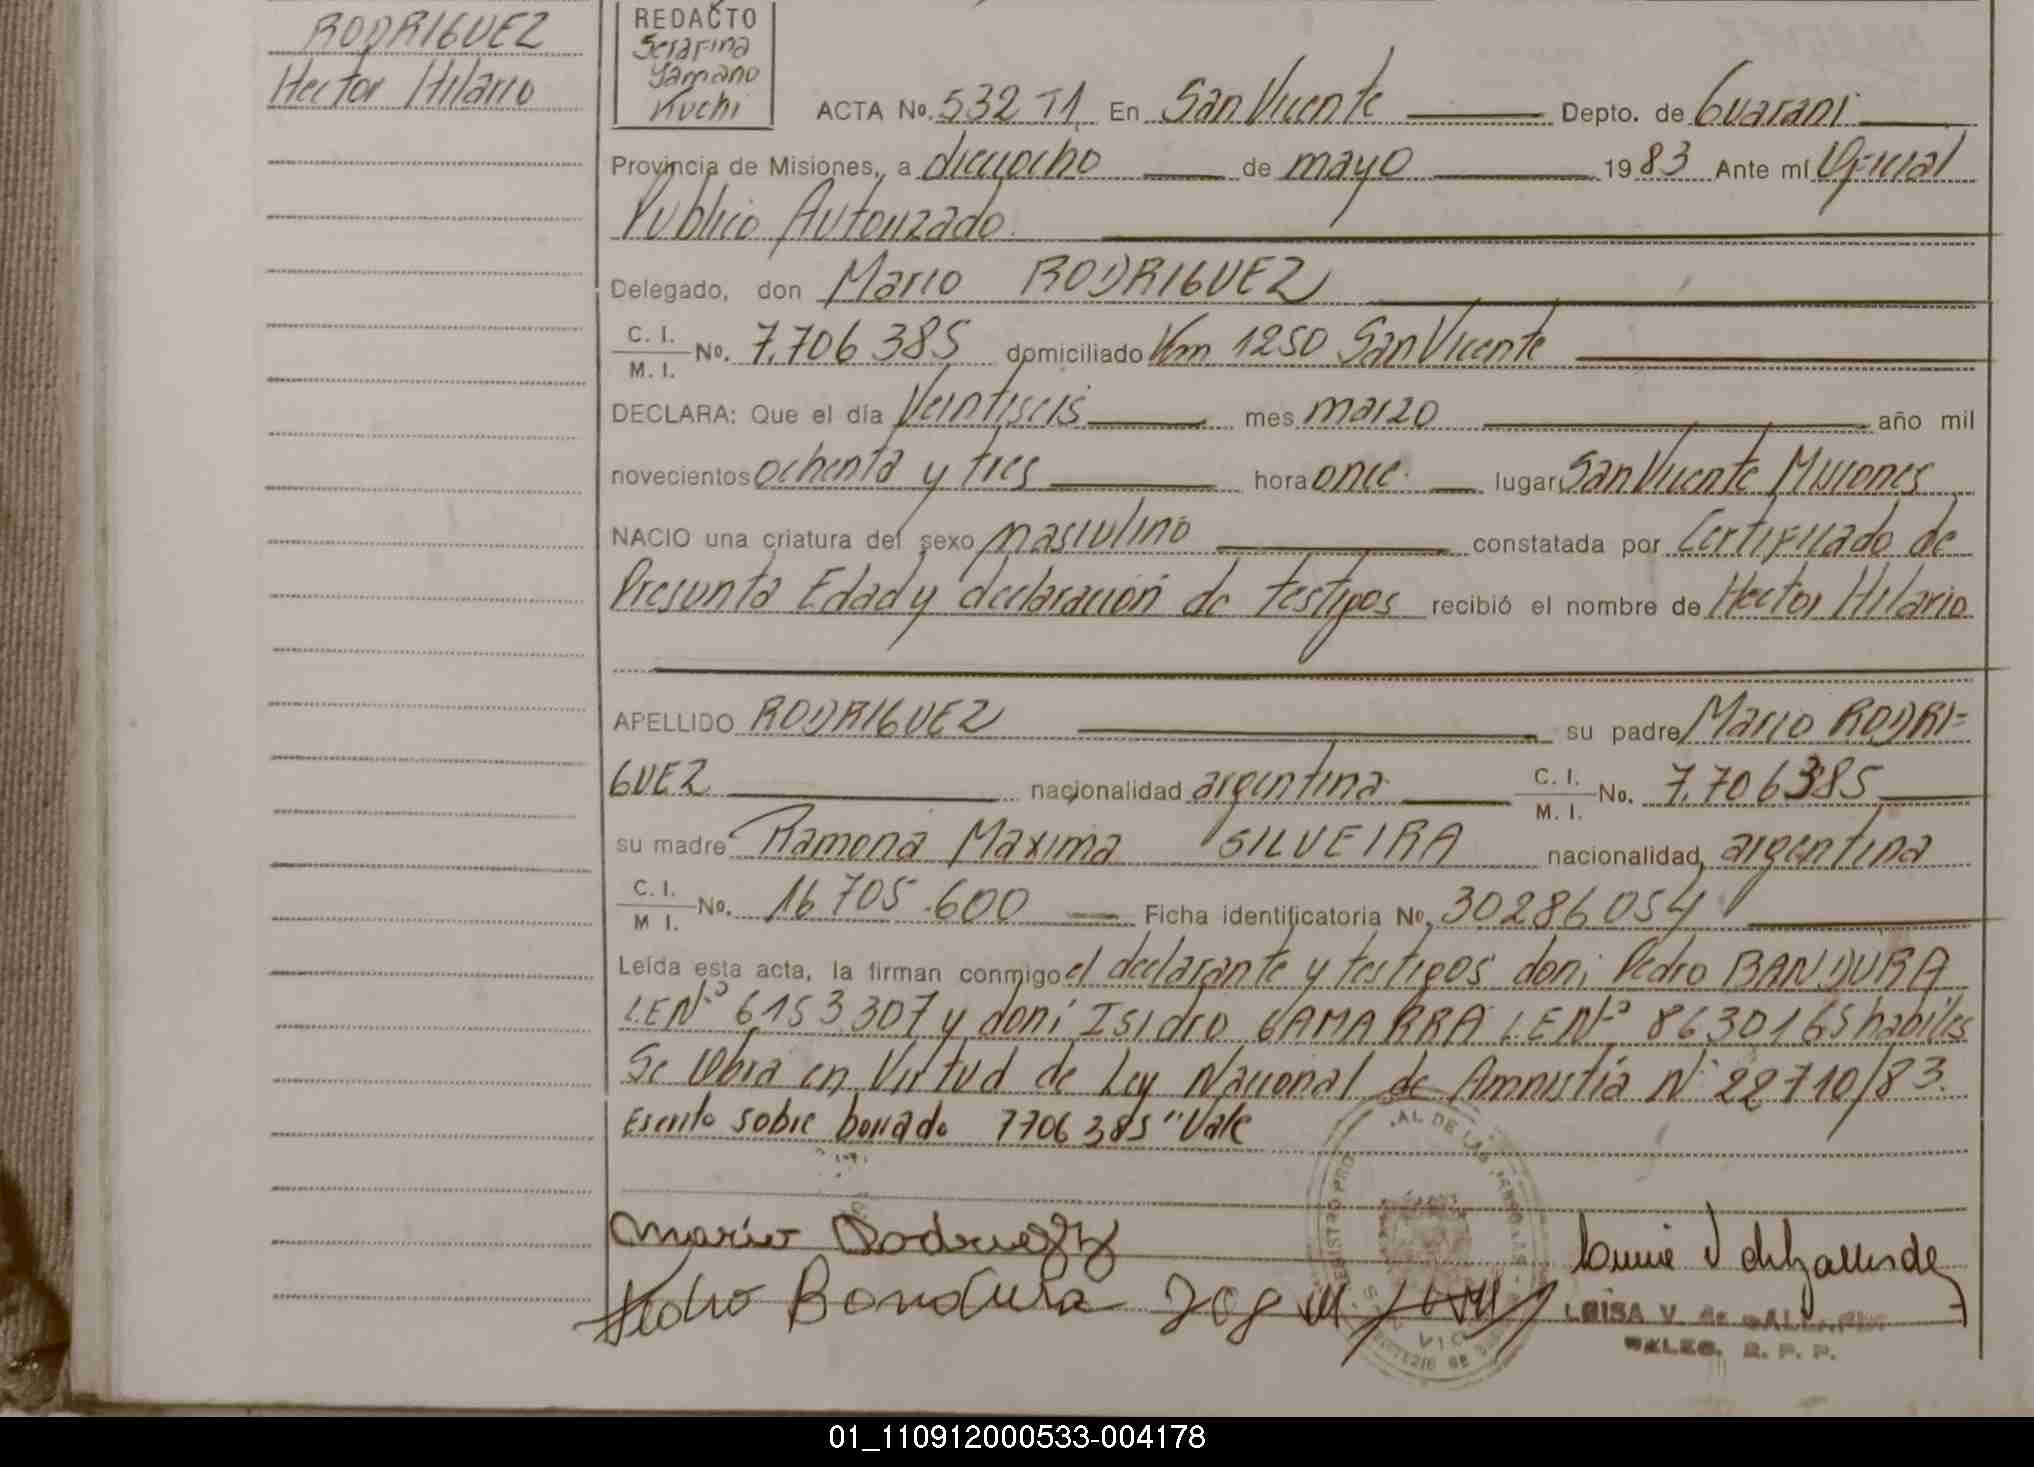 RODRIGUEZ
Hector Hilario
REDACTO
Serafina
Yamano
Kuchi
ACTA No. 532 T1 En San Vicente Depto. de Guarani
Provincia de Misiones, a dieciocho de mayo 1983 Ante mí Oficial
Publico Autorizado.
Delegado, don Mario RODRIGUEZ
C. I.
M. I. No. 7.706 385 domiciliado Km 1250 San Vicente
DECLARA: Que el día Veintiseis mes marzo año mil
novecientos ochenta y tres hora once. lugar San Vicente Misiones
NACIO una criatura del sexo masculino constatada por Certificado de
Presunta Edad y declaración de testigos recibió el nombre de Hector Hilario
APELLIDO RODRIGUEZ su padre Mario RODRI=
GUEZ nacionalidad argentina C. I.
M. I. No. 7.706385
su madre Ramona Maxima SILVEIRA nacionalidad argentina
C. I.
M I. No. 16 705 .600 Ficha identificatoria No. 30286054
Leída esta acta, la firman conmigo el declarante y testigos don: Pedro BANDURA
L.E Nº 6153307 y don: Isidro GAMARRA L.E Nº 8630165 habiles
Se Obra en Virtud de Ley Nacional de Amnistía Nº 22710/83.
Escrito sobre borrado 7706385 "Vale
Mario Rodriguez
Pedro Bandura
LUISA V. de
DELEG. R. P. P.
01_110912000533-004178